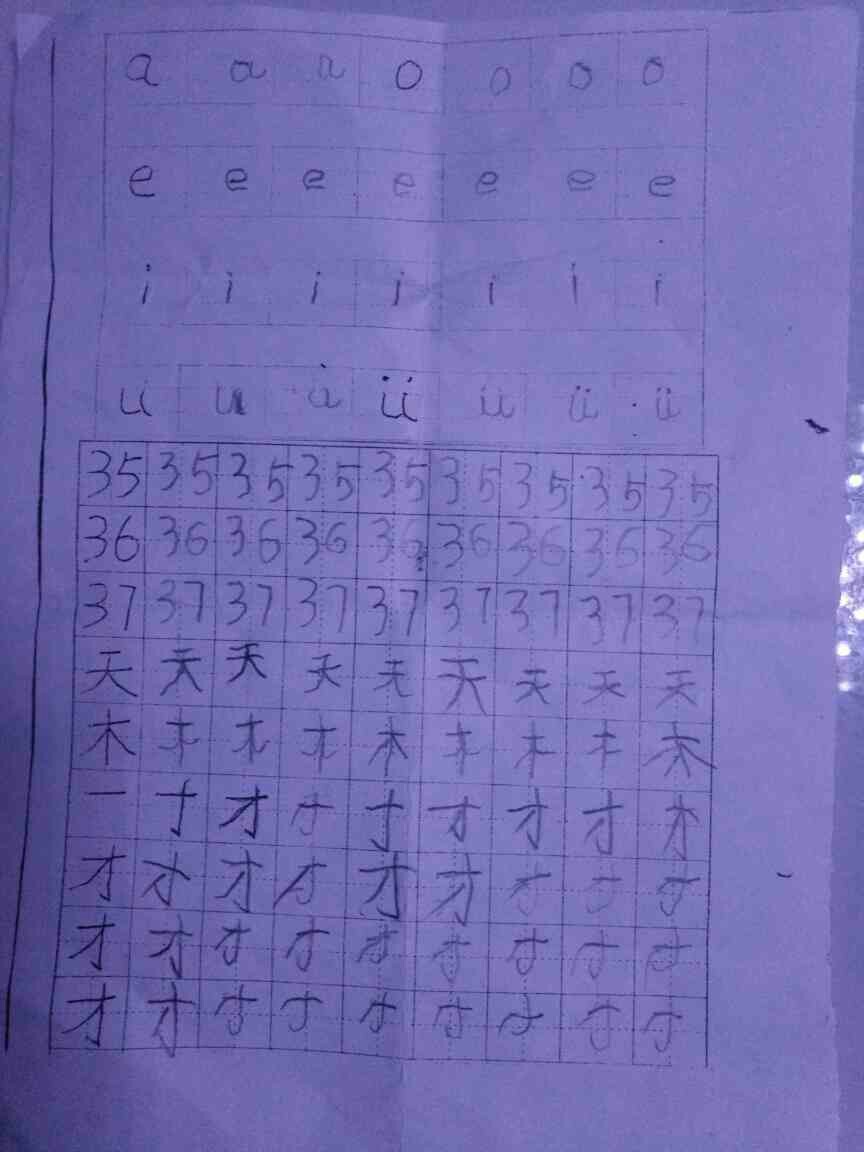 a a a o o o o
e e e e e e e
i i i i i i i
u u u ü ü ü ü
35 35 35 35 35 35 35 35 35
36 36 36 36 36 36 36 36 36
37 37 37 37 37 37 37 37 37
天 天 天 天 天 天 天 天 天
木 木 木 木 木 木 木 木 木
一 十 才 才 才 才 才 才 才
才 才 才 才 才 才 才 才 才
才 才 才 才 才 才 才 才 才
才 才 才 才 才 才 才 才 才